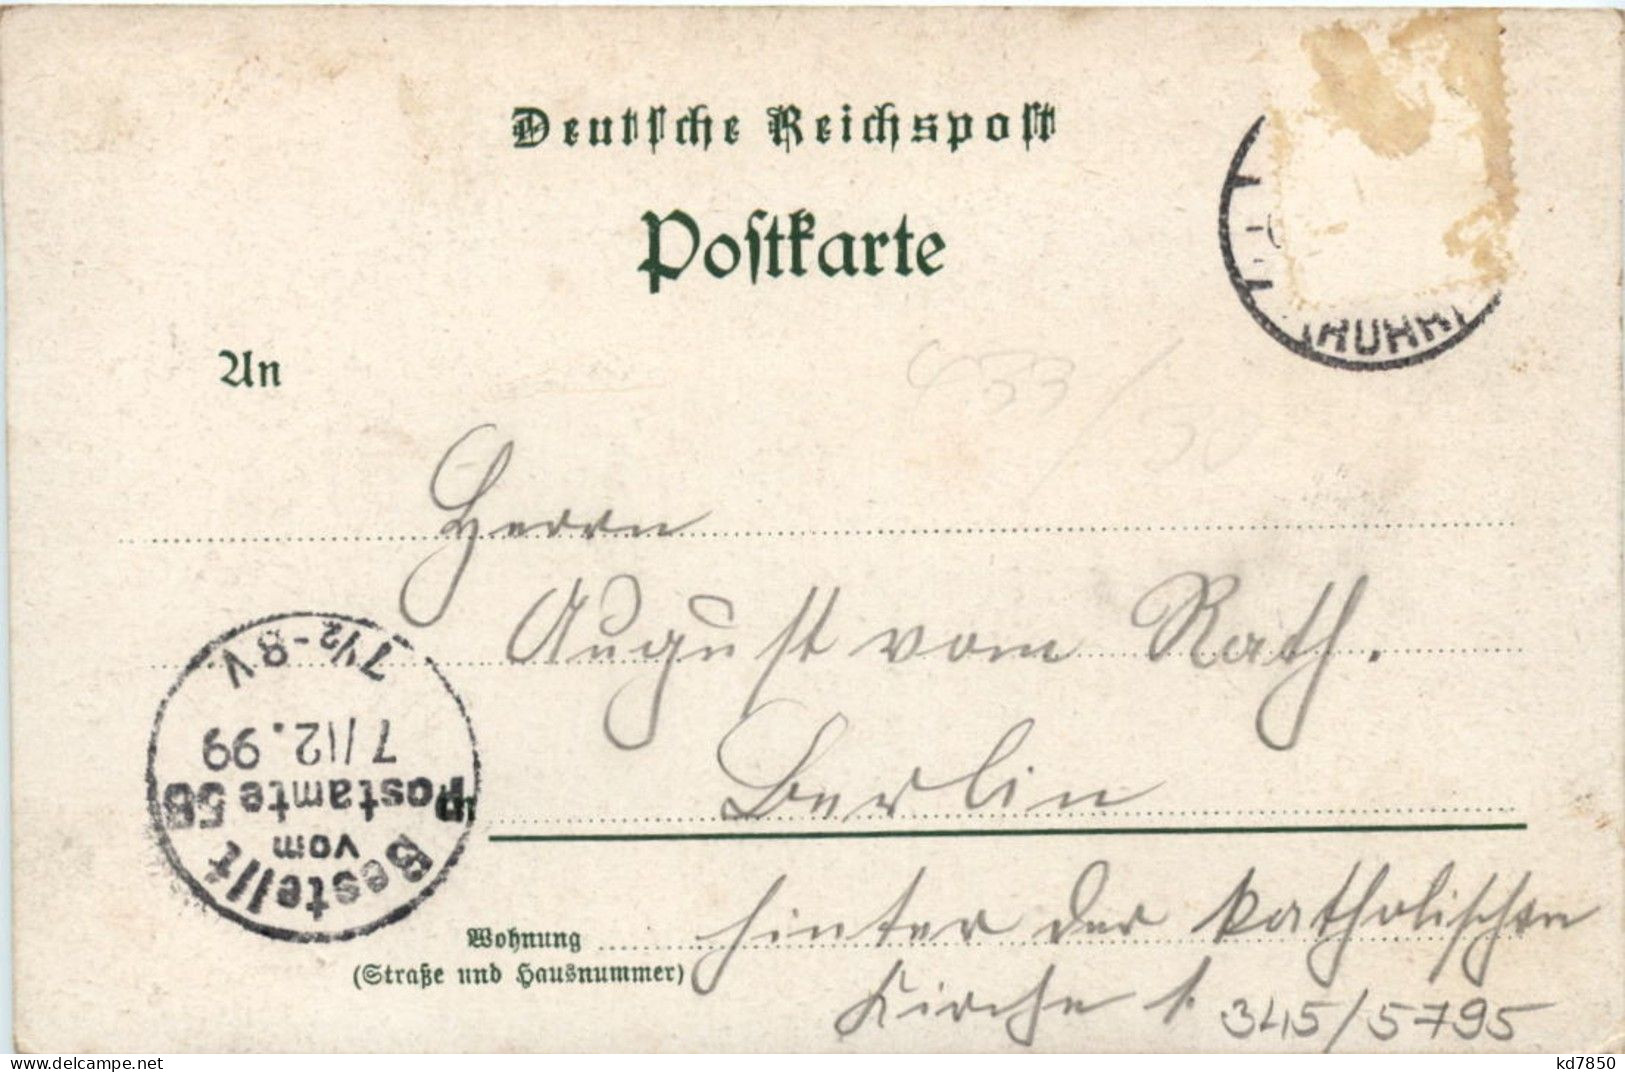 Deutsche Reichspost
Postkarte
(RUHR)
An
433/50
Herrn
August vom Rath.
Berlin
Bestellt
vom
Postamte 58
7/12.99
7½-8V.
in
Wohnung
(Straße und Hausnummer)
hinter der katholischen
Kirche 1.
345/5795
delcampe.net
kd7850